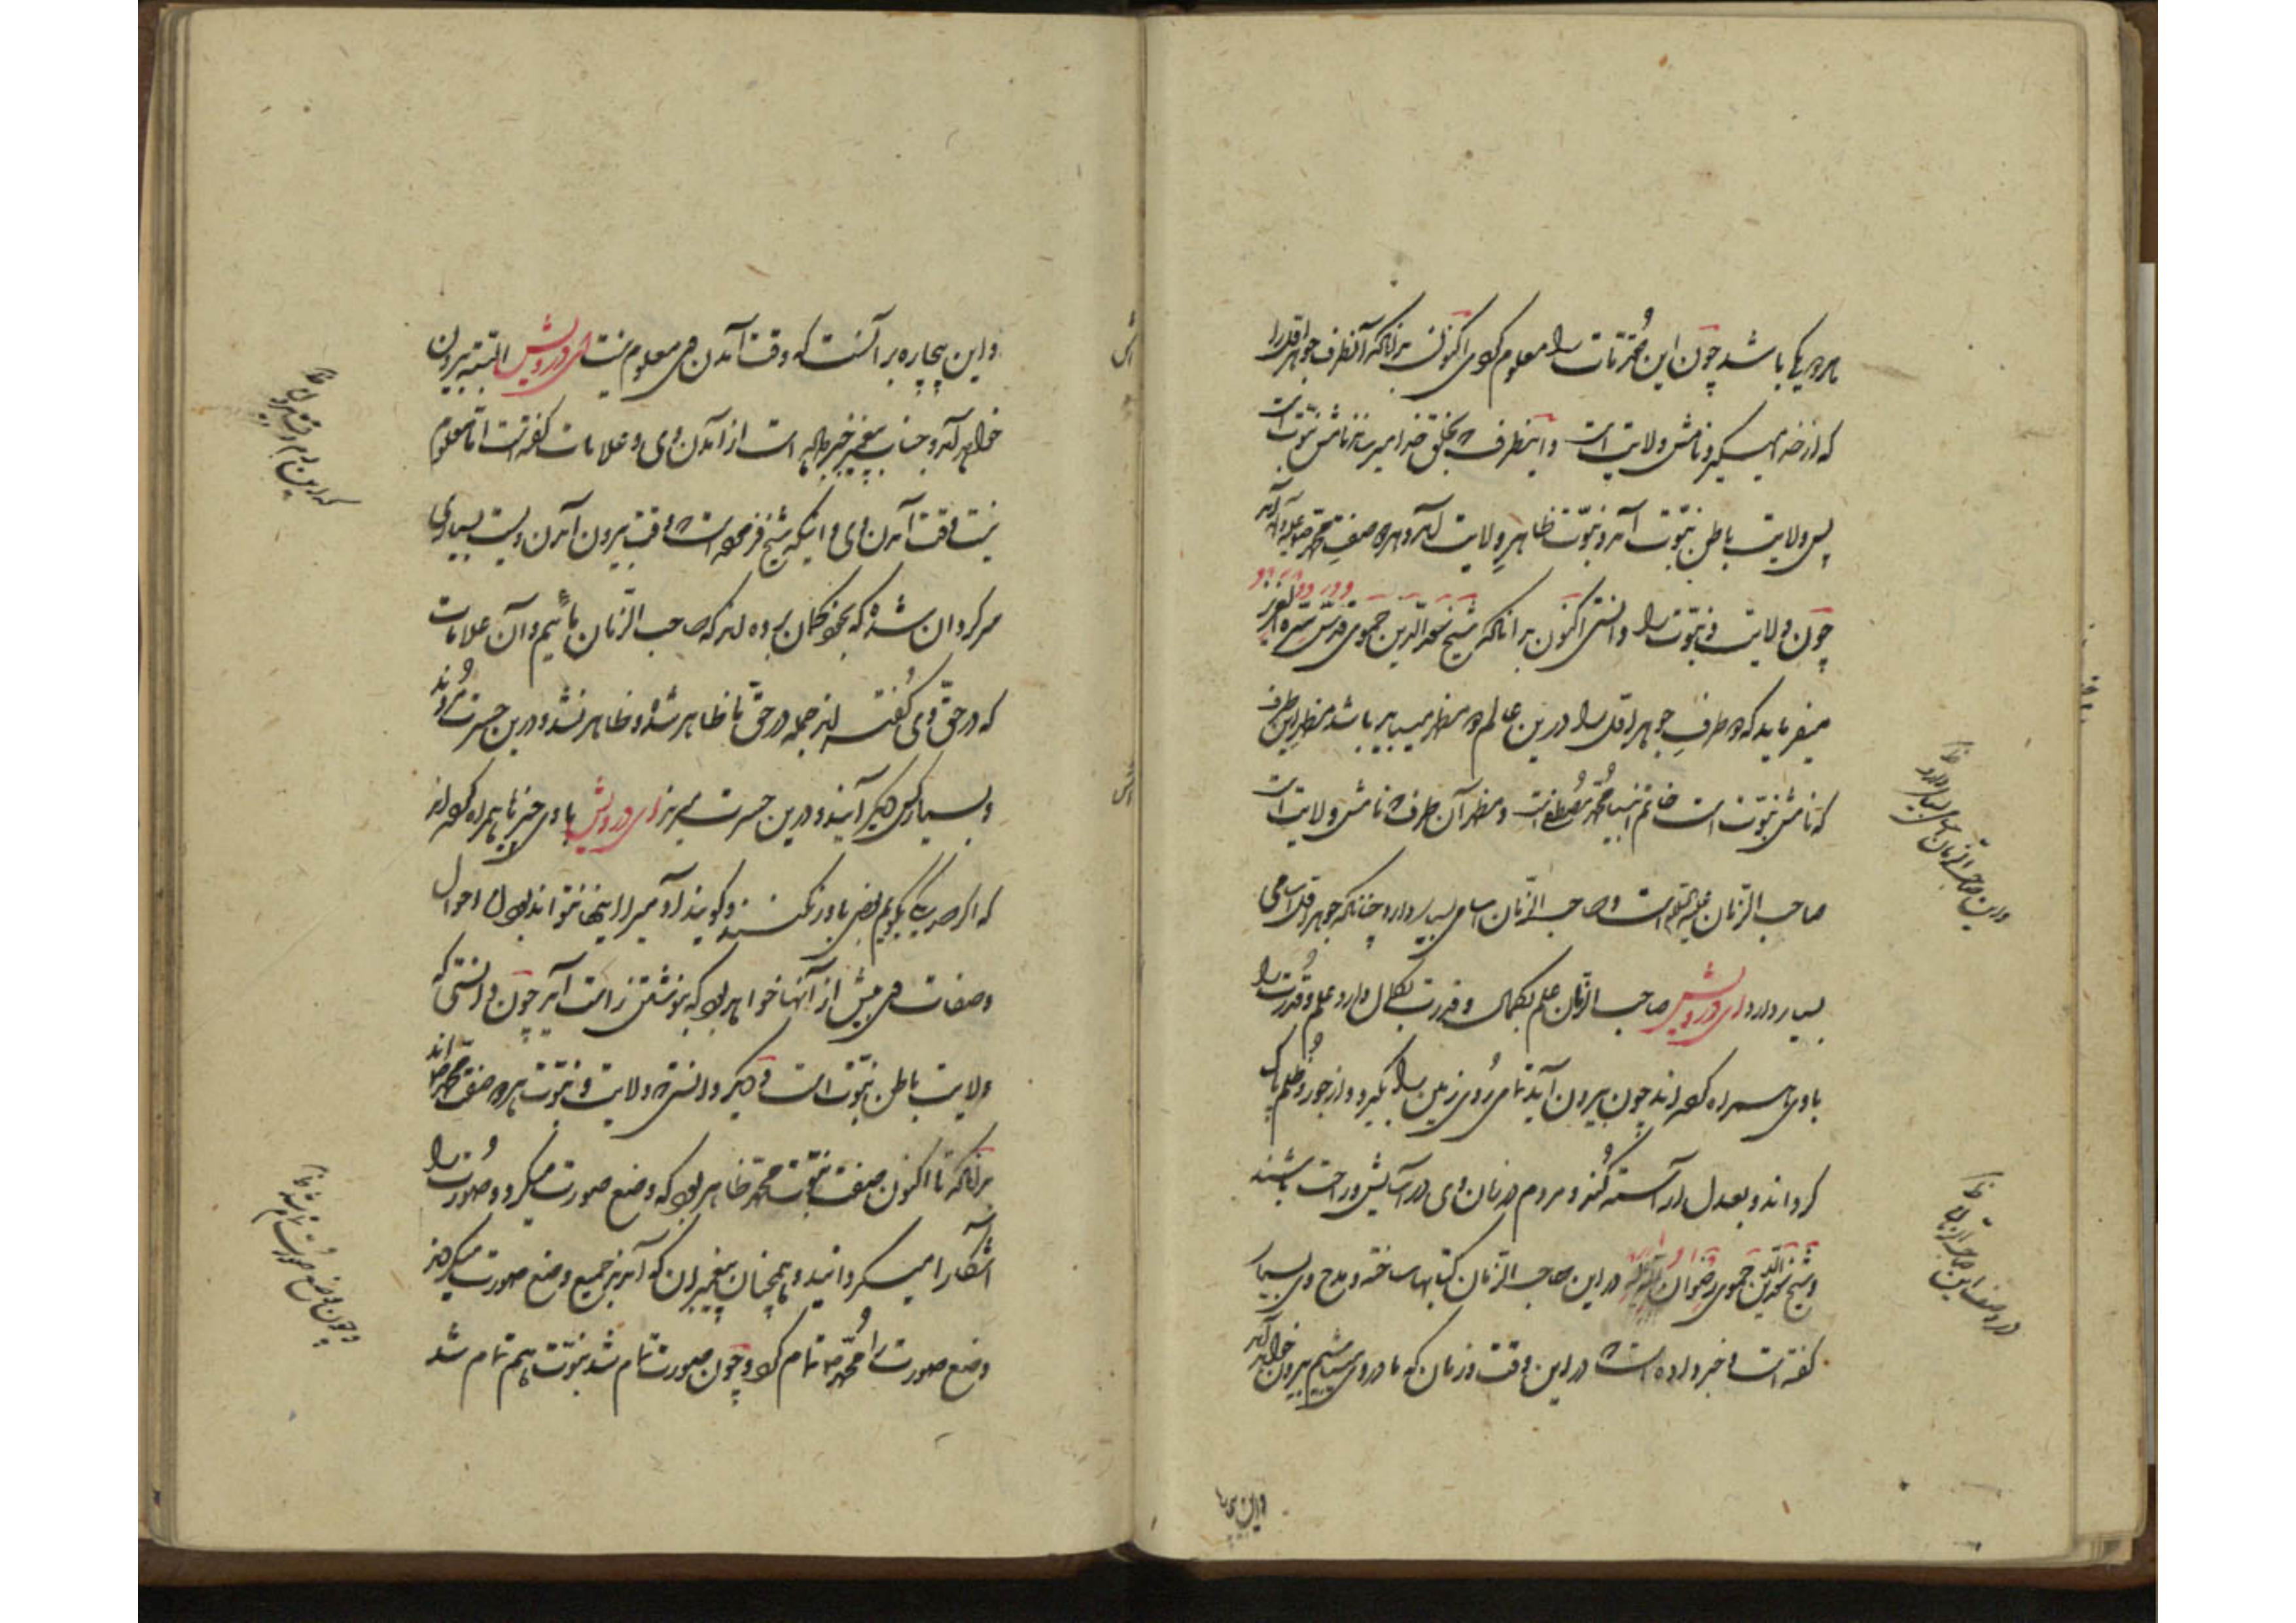 هر دو یکی باشد چون این مقدمات را معلوم کردی اکنون بدانکه آنطرف جوهر اول را
که از خدا میگیرد نامش ولایت است و اینطرف که بخلق خدا میرساند نامش نبوت است
پس ولایت باطن نبوت آمد و نبوت ظاهر ولایت آمد و هر دو صفت محمد
چون ولایت و نبوت را دانستی اکنون بدانکه شیخ سعد الدین حموی قدس سره العزیز
میفرماید که دو طرف جوهر اول را درین عالم دو مظهر میباید باشد مظهر این طرف
که نامش نبوت است خاتم انبیا محمد مصطفی است و مظهر آن طرف که نامش ولایت است
صاحب الزمان علیه السلام است و صاحب الزمان اسامی بسیار دارد چنانکه جوهر اول اسامی
بسیار دارد ای درویش صاحب الزمان علم بکمال و قدرت بکمال دارد علم و قدرت را
با وی همراه کرده اند چون بیرون آید تمامی روی زمین را بگیرد و از جور و ظلم پاک
گرداند و بعدل آراسته کند و مردم در زمان وی در آسایش و راحت باشند
و شیخ سعد الدین حموی در این صاحب الزمان کتابها ساخته و مدح وی بسیار
گفته است و خبر داده است که در این وقت و زمان که ما در وی میباشیم بیرون خواهد آمد
و این بیچاره
و این بیچاره بر آنست که وقت آمدن وی معلوم نیست ای درویش البته بیرون
خواهد آمد و جناب پیغمبر خبر داده است از آمدن وی و علامات گفته است اما معلوم
نیست وقت آمدن وی و اینکه شیخ فرموده است که وقت بیرون آمدن ویست بسیاری
سرگردان شده که بخود گمان برده اند که صاحب الزمان مائیم و آن علامات
که در حق وی گفته اند جمله در حق ما ظاهر شده و ظاهر نشد و درین حسرت مردند
و بسیار کس دیگر آیند و درین حسرت میرند ای درویش با وی چیزها همراه کرده اند
که اگر صد یک بگویم بعضی باور نکنند و گویند آدمی را اینها نتواند بود احوال
و صفات وی بیش از آنها خواهد بود که بنوشتن راست آید چون دانستی که
ولایت باطن نبوت است و دیگر دانستی که ولایت و نبوت هر دو صفت محمد اند
بدانکه تا اکنون صفت نبوت محمد ظاهر بود که وضع صورت میکرد و صورت را
آشکارا میگردانید و همچنان پیغمبران که آمدند جمیع وضع صورت میکردند
وضع صورت را محمد تمام کرد و چون صورت تمام شد نبوت هم تمام شد